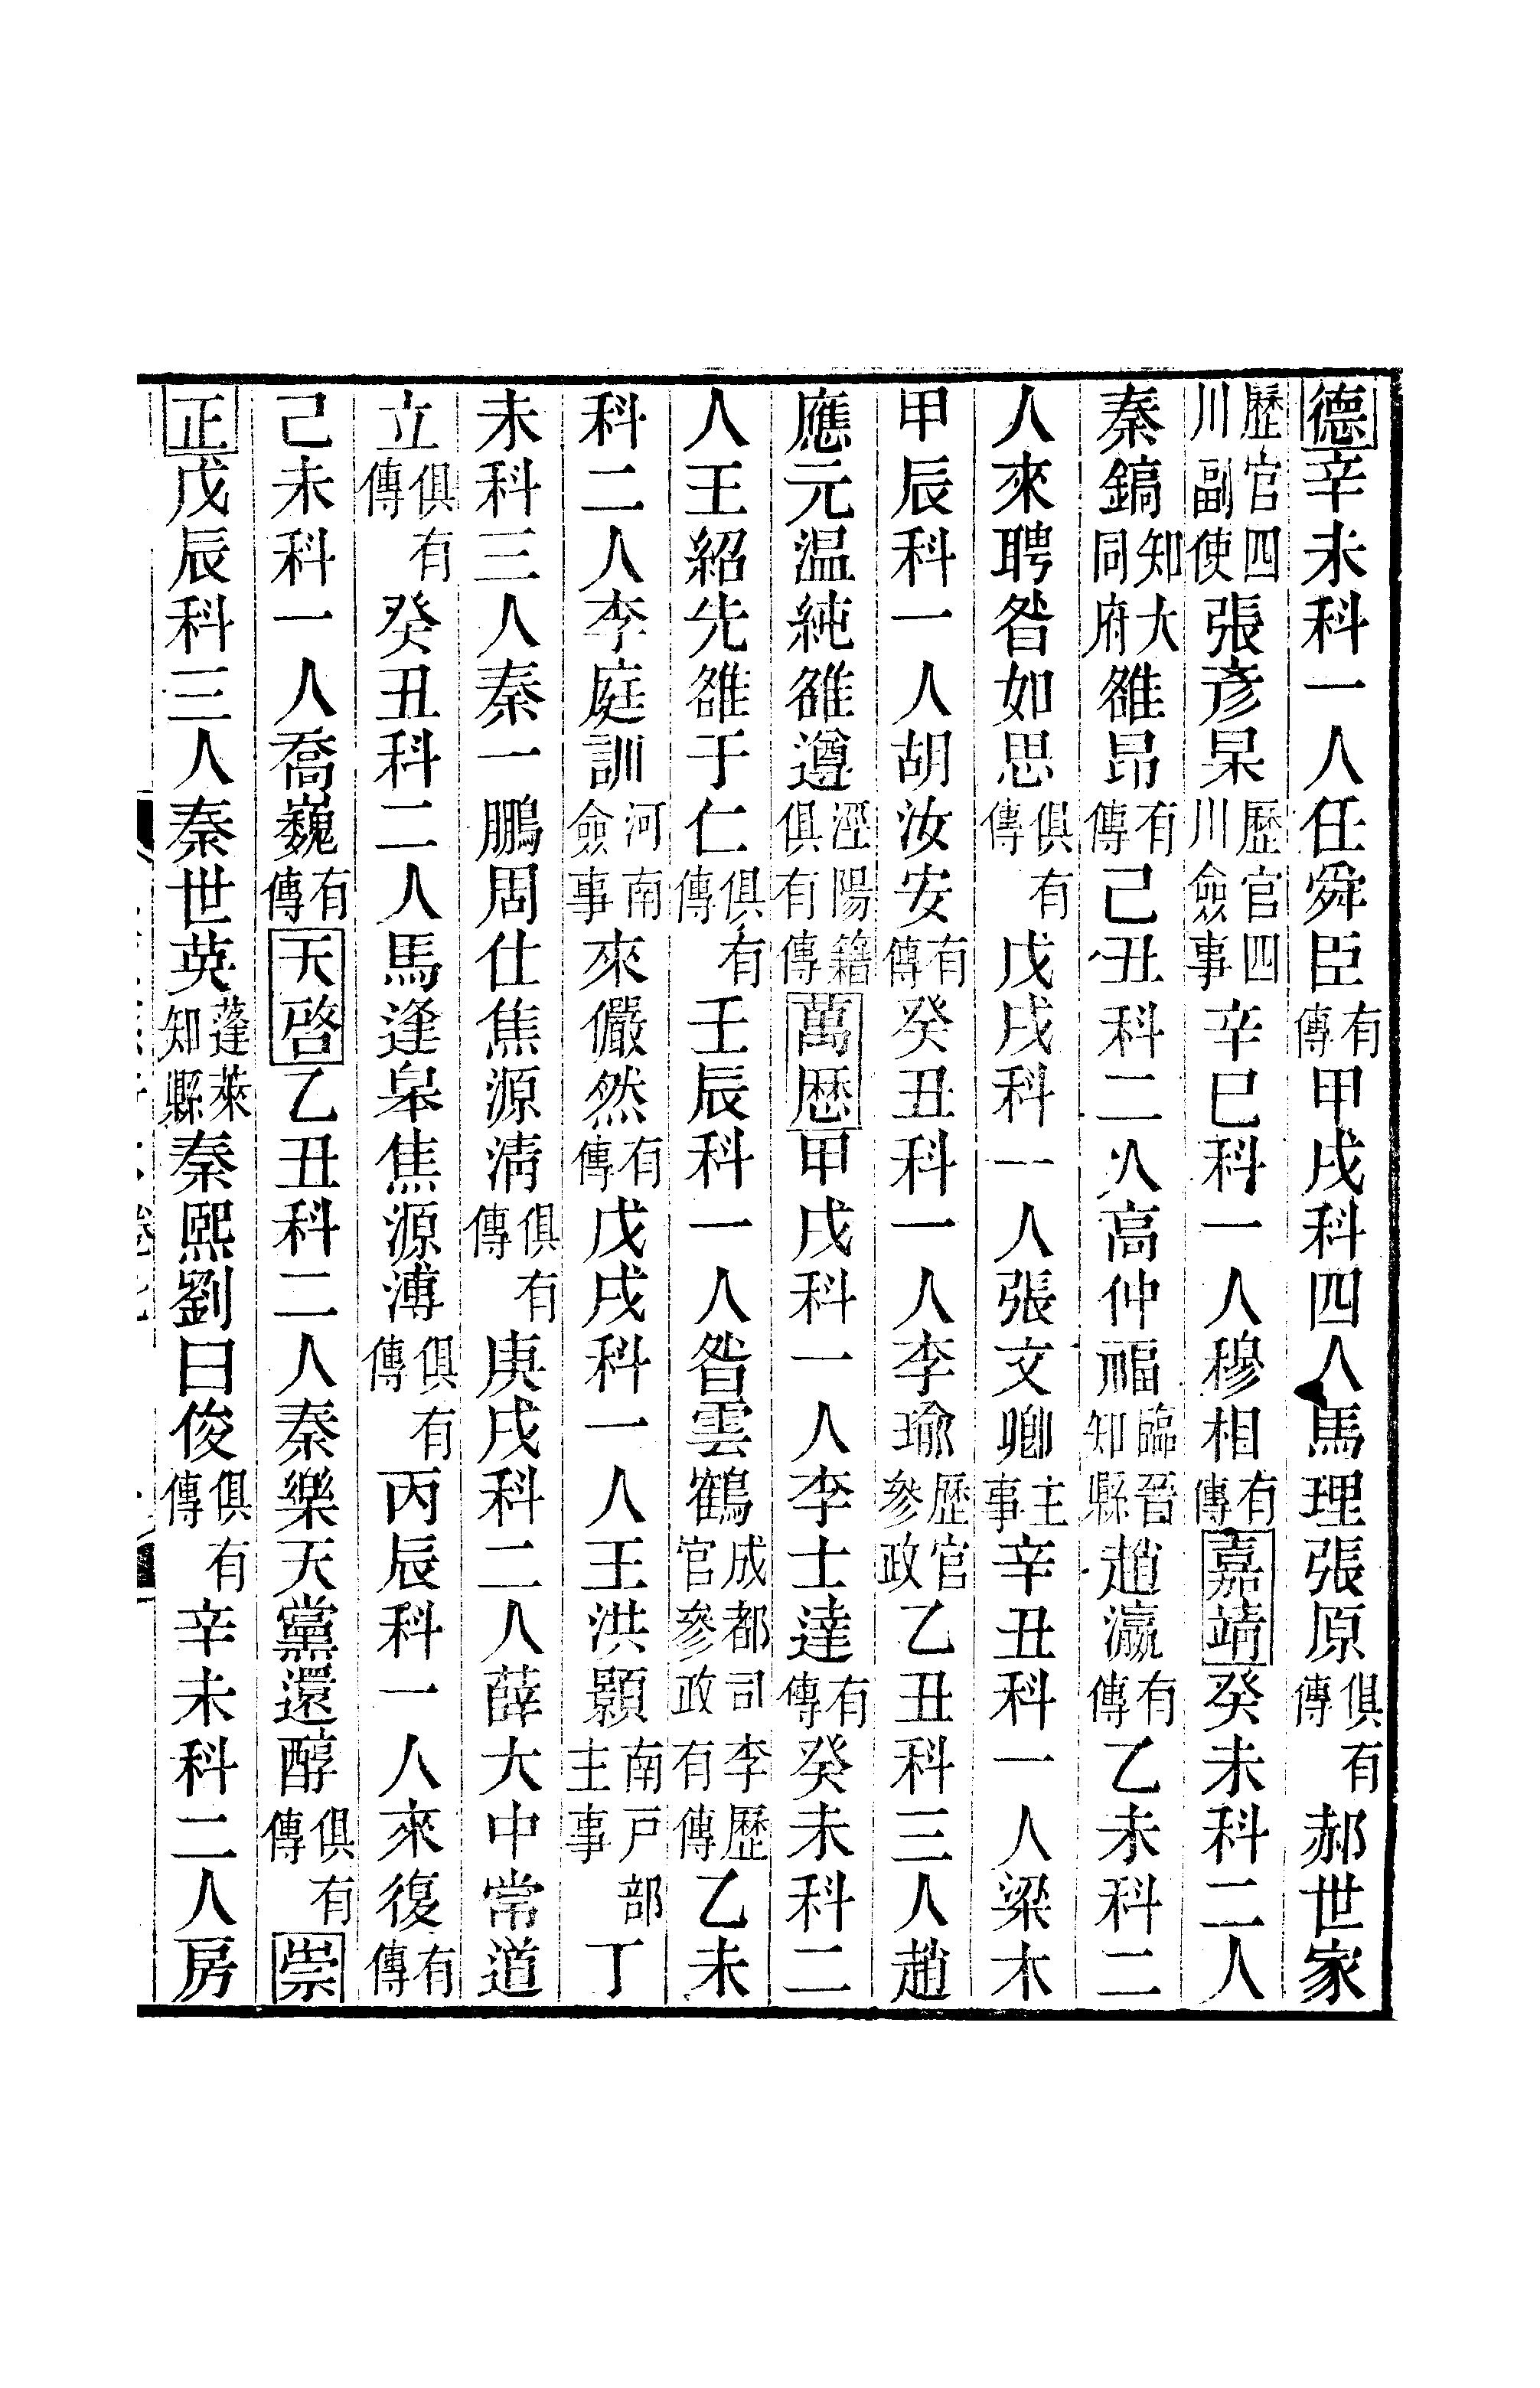 德辛未科一人任舜臣有傳甲戌科四人馬理張原俱有傳郝世家
歷官四川副使張彥杲歷官四川僉事辛巳科一人穆相有傳嘉靖癸未科二人
秦鎬知大同府雒昂有傳己丑科二人高仲福臨晉知縣趙瀛有傳乙未科二
人來聘昝如思俱有傳戊戌科一人張文卿主事辛丑科一人梁木
甲辰科一人胡汝安有傳癸丑科一人李瑜歷官參政乙丑科三人趙
應元温純雒遵涇陽籍俱有傳萬歷甲戌科一人李士達有傳癸未科二
人王紹先雒于仁俱有傳壬辰科一人昝雲鶴成都司李歷官參政有傳乙未
科二人李庭訓河南僉事來儼然有傳戊戌科一人王洪顯南戸部主事丁
未科三人秦一鵬周仕焦源清俱有傳庚戌科二人薛大中常道
立俱有傳癸丑科二人馬逢皋焦源溥俱有傳丙辰科一人來復有傳
己未科一人喬巍有傳天啓乙丑科二人秦樂天黨還醇俱有傳崇
正戊辰科三人秦世英蓬萊知縣秦熙劉曰俊俱有傳辛未科二人房